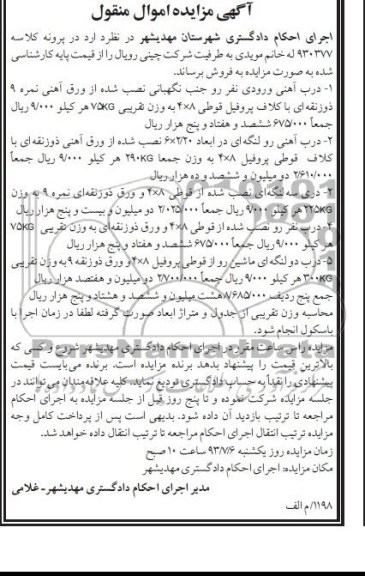 آگهی مزایده اموال منقول
اجرای احکام دادگستری شهرستان مهدیشهر در نظرد ارد در پرونه کلاسه
۹۳۰۳۷۷ له خانم مویدی به طرفیت شرکت چینی رویال را از قیمت پایه کارشناسی
شده به صورت مزایده به فروش برساند.
۱- درب آهنی ورودی نفر رو جنب نگهبانی نصب شده از ورق آهنی نمره ۹
ذوزنقه‌ای با کلاف پروفیل قوطی ۸×۴ به وزن تقریبی ۷۵KG هر کیلو ۹/۰۰۰ ریال
جمعاً ۶۷۵/۰۰۰ ششصد و هفتاد و پنج هزار ریال
۲- درب آهنی رو لنگه‌ای در ابعاد ۲/۲۰×۶ نصب شده از ورق آهنی ذوزنقه‌ای با
کلاف قوطی پروفیل ۸×۴ به وزن جمعا ۲۹۰KG هر کیلو ۹/۰۰۰ ریال جمعاً
۲/۶۱۰/۰۰۰ دو میلیون و ششصد و ده هزار ریال
۳- درق سه لنگه‌ای نصب شده از قوطی ۸×۴ و ورق ذوزنقه‌ای نمره ۹ به وزن
۲۲۵KG هر کیلو ۹/۰۰۰ ریال جمعاً ۲/۰۲۵/۰۰۰ دو میلیون و بیست و پنج هزار ریال
۴- درب نفر رو نصب شده از قوطی ۸×۴ و ورق ذوزنقه‌ای به وزن تقریبی ۷۵KG
هر کیلو ۹/۰۰۰ ریال جمعاً ۶۷۵/۰۰۰ ششصد و هفتاد و پنج هزار ریال
۵- درب دو لنگه‌ای ماشین رو از قوطی پروفیل ۸×۴ و ورق ذوزنقه ۹ به وزن تقریبی
۳۰۰KG هر کیلو ۹/۰۰۰ ریال جمعاً ۲/۷۰۰/۰۰۰ دو میلیون و هفتصد هزار ریال
جمع پنج ردیف ۷/۶۸۵/۰۰۰ هشت میلیون و ششصد و هشتاد و پنج هزار ریال
محاسبه وزن تقریبی از جدول و متراژ ابعاد صورت گرفته لطفا در زمان اجرا با
باسکول انجام شود.
مزایده راس ساعت مقرر در اجرای احکام دادگستری مهدیشهر شروع و کسی که
بالاترین قیمت را پیشنهاد بدهد برنده مزایده است. برنده می‌بایست قیمت
پیشنهادی را نقداً به حساب دادگستری تودیع نماید. کلیه علاقه‌مندان می‌توانند در
جلسه مزایده شرکت نموده و تا پنج روز قبل از جلسه مزایده به اجرای احکام
مراجعه تا ترتیب بازدید آن داده شود. بدیهی است پس از پرداخت کامل وجه
مزایده ترتیب انتقال اجرای احکام مراجعه تا ترتیب انتقال داده خواهد شد.
زمان مزایده روز یکشنبه ۹۳/۷/۶ ساعت ۱۰ صبح
مکان مزایده: اجرای احکام دادگستری مهدیشهر
مدیر اجرای احکام دادگستری مهدیشهر- غلامی
۱۱۹۸/م الف